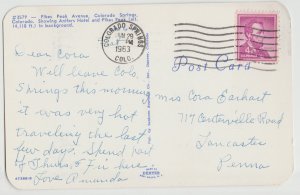 C1579. Pikes Peak Avenue, Colorado Springs,
Colorado. Showing Antlers Hotel and Pikes Peak (alt.
14,110 ft.) in background.
COLORADO SPRINGS
1963
COLO.
Dear Cora
Will leave Colo.
Springs this morning
it was very hot
traveling the last
few days. Spend part
of Thurs. & F. in here
Love Amanda
Post Card
Mrs Cora Earhart
717 Centerville Road
Lancaster
Penna
DENVER